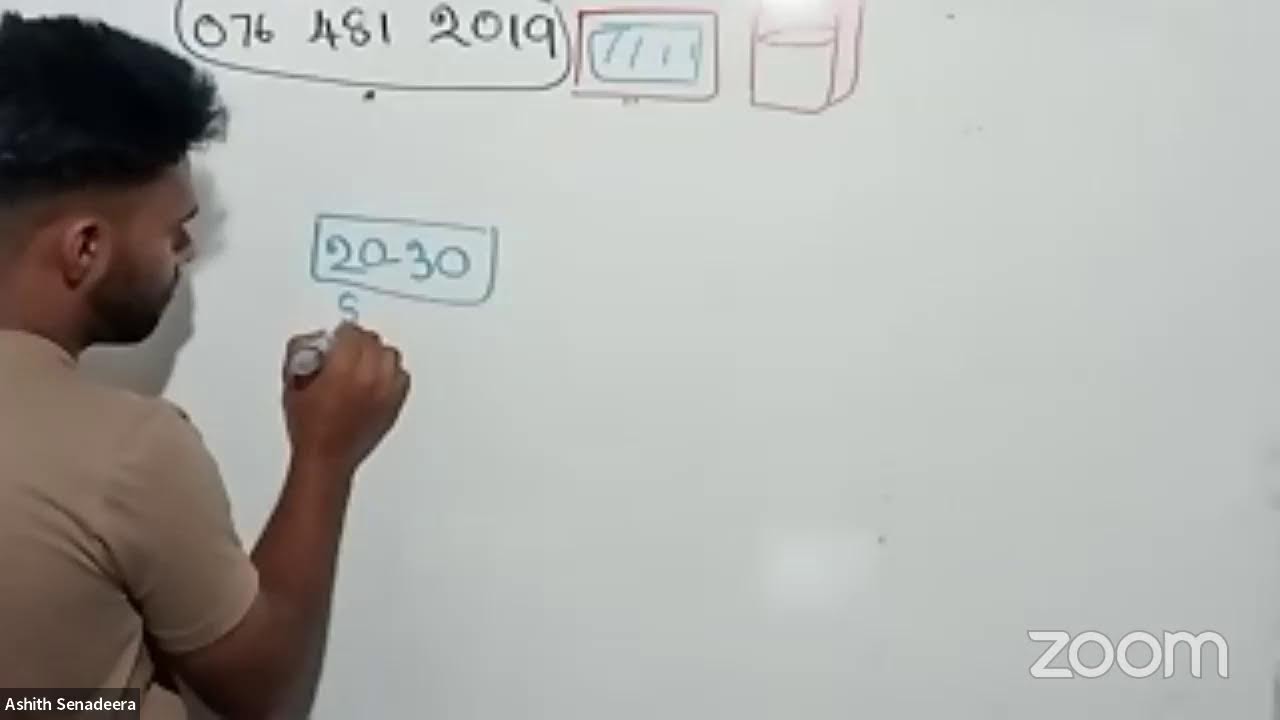 076 481 2019
20-30
S
zoom
Ashith Senadeera